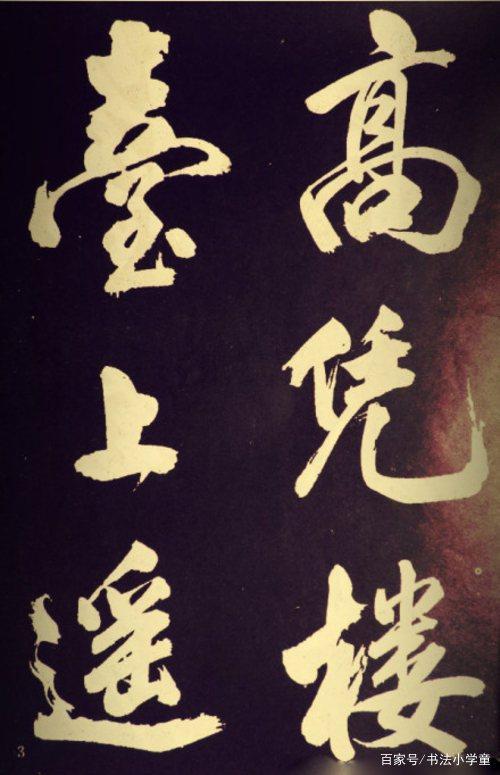 高凭楼
臺上遥
3
百家号/书法小学童